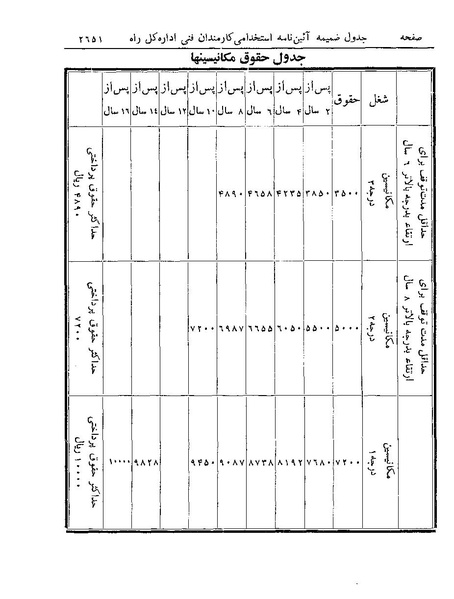 صفحه جدول ضمیمه آئین‌نامه استخدامی کارمندان فنی اداره کل راه ۲۶۵۱
جدول حقوق مکانیسینها
شغل حقوق پس از ۲ سال پس از ۴ سال پس از ۶ سال پس از ۸ سال پس از ۱۰ سال پس از ۱۲ سال پس از ۱۴ سال پس از ۱۶ سال
حداقل مدت توقف برای ارتقاء بدرجه بالاتر ۶ سال مکانیسین درجه ۳ ۳۵۰۰ ۳۸۵۰ ۴۲۳۵ ۴۶۵۸ ۴۸۹۰ حداکثر حقوق پرداختی ۴۸۹۰ ریال
حداقل مدت توقف برای ارتقاء بدرجه بالاتر ۸ سال مکانیسین درجه ۲ ۵۰۰۰ ۵۵۰۰ ۶۰۵۰ ۶۶۵۵ ۶۹۸۷ ۷۲۰۰ حداکثر حقوق پرداختی ۷۲۰۰
مکانیسین درجه ۱ ۷۲۰۰ ۷۶۸۰ ۸۱۹۲ ۸۷۳۸ ۹۰۸۷ ۹۴۵۰ ۹۸۲۸ ۱۰۰۰۰ حداکثر حقوق پرداختی ۱۰۰۰۰ ریال